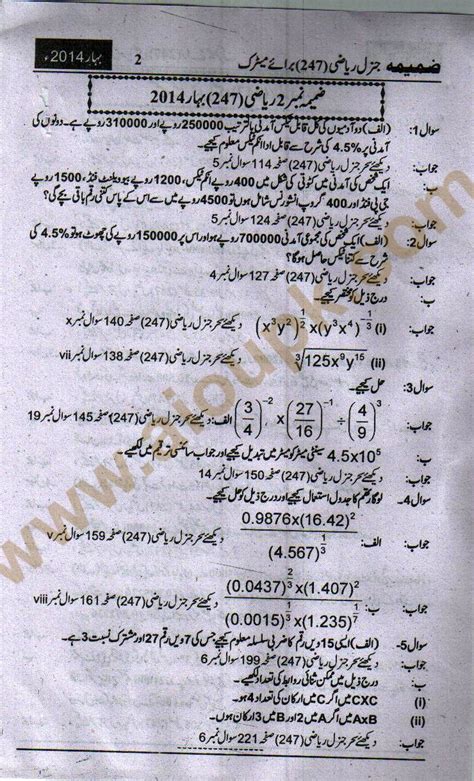 ضمیمه جنرل ریاضی (247) برائے میٹرک 2 بہار 2014ء
ضمیمہ نمبر 2 ریاضی (247) بہار 2014
سوال 1: (الف) دو آدمیوں کی کل قابل ٹیکس آمدنی بالترتیب 250000 روپے اور 310000 روپے ہے۔ دونوں کی
آمدنی پر 4.5% کی شرح سے قابل ادا انکم ٹیکس معلوم کیجیے۔
جواب: دیکھئے سحر جنرل ریاضی (247) صفحہ 114 سوال نمبر 5
ب: ایک شخص کی آمدنی میں کٹوتی کی شکل میں 400 روپے انکم ٹیکس، 1200 روپے بینوولینٹ فنڈ، 1500 روپے
جی پی فنڈ اور 400 گروپ انشورنس شامل ہوں تو 4500 روپے میں سے اس کے پاس کتنی رقم باقی بچے گی؟
جواب: دیکھئے سحر جنرل ریاضی (247) صفحہ 124 سوال نمبر 5
سوال 2: (الف) ایک شخص کی مجموعی آمدنی 700000 روپے ہو اور اس پر 150000 روپے کی چھوٹ ہو تو 4.5% کی
شرح سے کتنا ٹیکس حاصل ہوگا؟
جواب: دیکھئے سحر جنرل ریاضی (247) صفحہ 127 سوال نمبر 4
ب: درج ذیل کو مختصر کیجیے۔
جواب: (i) (x³y²)^(1/2) x (y³x⁴)^(1/3) دیکھئے سحر جنرل ریاضی (247) صفحہ 140 سوال نمبر x
(ii) ∛125x⁹y¹⁵ دیکھئے سحر جنرل ریاضی (247) صفحہ 138 سوال نمبر vii
سوال 3: حل کیجیے۔
جواب: (3/4)^-2 x (27/16)^-1 ÷ (4/9)^3 الف: دیکھئے سحر جنرل ریاضی (247) صفحہ 145 سوال نمبر 19
ب: 4.5x10⁵ سینٹی میٹر کو میٹر میں تبدیل کیجیے اور جواب سائنسی ترقیم میں لکھیے۔
جواب: دیکھئے سحر جنرل ریاضی (247) صفحہ 150 سوال نمبر 14
سوال 4۔ لوگارتھم کا جدول استعمال کیجیے اور درج ذیل کو حل کیجیے۔
جواب: الف: 0.9876x(16.42)² / (4.567)^(1/3) دیکھئے سحر جنرل ریاضی (247) صفحہ 159 سوال نمبر v
جواب: ب: (0.0437)^(2/3) x (1.407)² / (0.0015)^(1/3) x (1.235)^(1/7) دیکھئے سحر جنرل ریاضی (247) صفحہ 161 سوال نمبر viii
سوال 5۔ (الف) ایسی 15 ویں رقم کا ضربی سلسلہ معلوم کیجیے جس کی 7 ویں رقم 27 اور مشترک نسبت 3 ہے۔
جواب: دیکھئے سحر جنرل ریاضی (247) صفحہ 199 سوال نمبر 6
ب: درج ذیل میں ممکن ثنائی روابط کی تعداد لکھیے۔
(i) CXC میں اگر C میں ارکان کی تعداد 4 ہو۔
(ii) AxB میں اگر A میں 2 اور B میں 3 ارکان ہوں۔
جواب: دیکھئے سحر جنرل ریاضی (247) صفحہ 221 سوال نمبر 6
www.aioupk.com